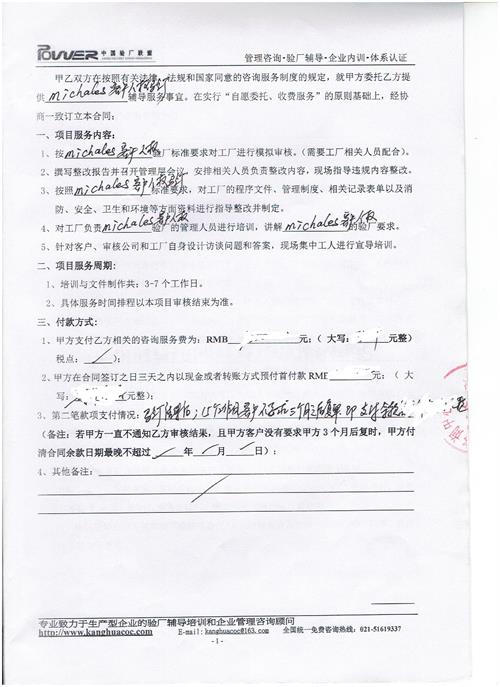 POWER 中国验厂联盟
管理咨询·验厂辅导·企业内训·体系认证
甲乙双方在按照有关法律、法规和国家同意的咨询服务制度的规定，就甲方委托乙方提
供 michales客户人权验厂 辅导服务事宜。在实行“自愿委托、收费服务”的原则基础上，经协
商一致订立本合同：
一、项目服务内容:
1、按 michales客户人权 验厂标准要求对工厂进行模拟审核。（需要工厂相关人员配合）。
2、撰写整改报告并召开管理层会议，安排相关人员负责整改内容，现场指导违规内容整改。
3、按照 michales客户人权验厂 标准要求，对工厂的程序文件、管理制度、相关记录表单以及消
防、安全、卫生和环境等方面资料进行指导整改并制定。
4、对工厂负责 michales客户人权 验厂的管理人员进行培训，讲解 michales客户人权 的验厂要求。
5、针对客户、审核公司和工厂自身设计访谈问题和答案，现场集中工人进行宣导培训。
二、项目服务周期:
1、培训与文件制作共：3-7 个工作日。
2、具体服务时间排程以本项目审核结束为准。
三、付款方式:
1、甲方支付乙方相关的咨询服务费为: RMB 元;（ 大写: 元整）
税点: ）；
2、甲方在合同签订之日三天之内以现金或者转账方式预付首付款 RME 元;（ 大
写: 元整）
3、第二笔款项支付情况: 个工作日 客户 三个月 支付
(备注：若甲方一直不通知乙方审核结果，且甲方客户没有要求甲方 3 个月后复时，甲方付
清合同余款日期最晚不超过 年 月 日）；
4、其他备注:
专业致力于生产型企业的验厂辅导培训和企业管理咨询顾问
http://www.kanghuacoc.com E-mail: kanghuacoc@163.com 全国统一免费咨询热线：021-51619337
- 1 -